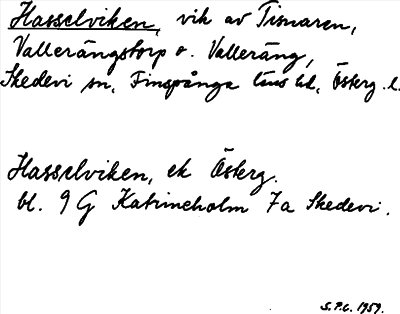 Hasselviken, vik av Tisnaren,
Vallerängstorp o. Valleräng,
Skedevi sn, Finspånga läns hd, Österg. l.
Hasselviken, ek Österg.
bl. 9 G Katrineholm 7a Skedevi.
S.P.C. 1959.